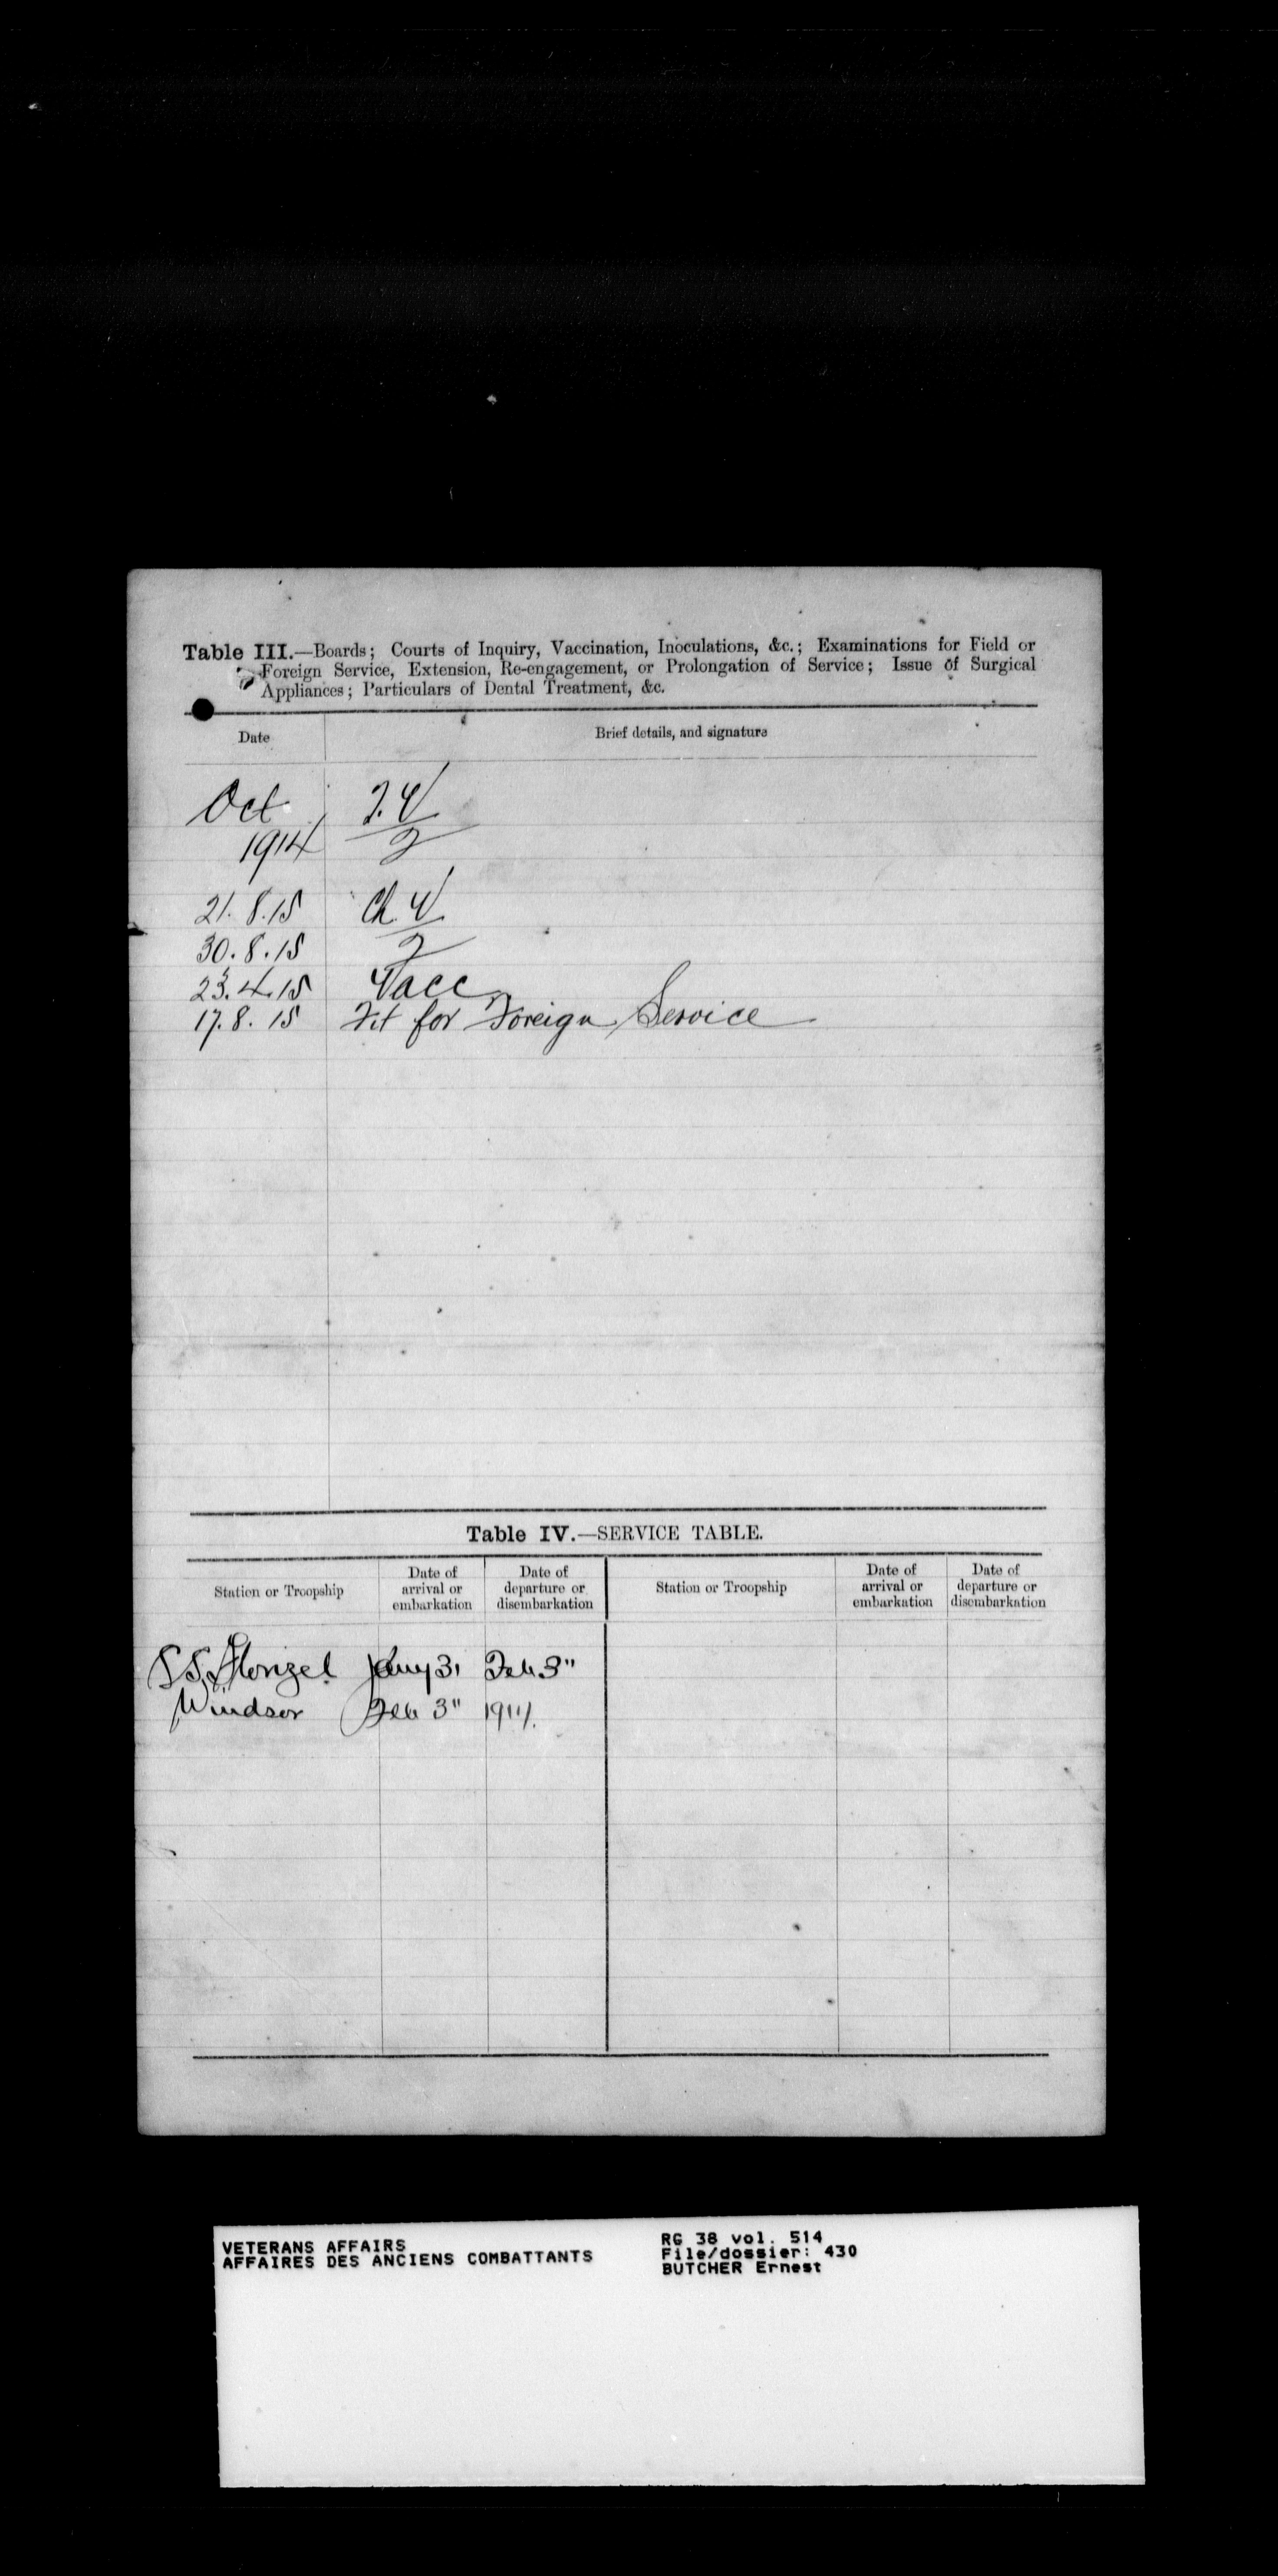 Table III.—Boards; Courts of Inquiry, Vaccination, Inoculations, &c.; Examinations for Field or
Foreign Service, Extension, Re-engagement, or Prolongation of Service; Issue of Surgical
Appliances; Particulars of Dental Treatment, &c.
Date Brief details, and signature
Oct T.V
1914 2
21.8.15 Ch V
30.8.15 2
23.4.15 Vacc
17.8.15 Fit for Foreign Service
Table IV.—SERVICE TABLE.
Station or Troopship Date of arrival or embarkation Date of departure or disembarkation Station or Troopship Date of arrival or embarkation Date of departure or disembarkation
SS Florizel Jany 31 Feb 3"
Windsor Feb 3"
VETERANS AFFAIRS RG 38 vol. 514
AFFAIRES DES ANCIENS COMBATTANTS File/dossier: 430
BUTCHER Ernest